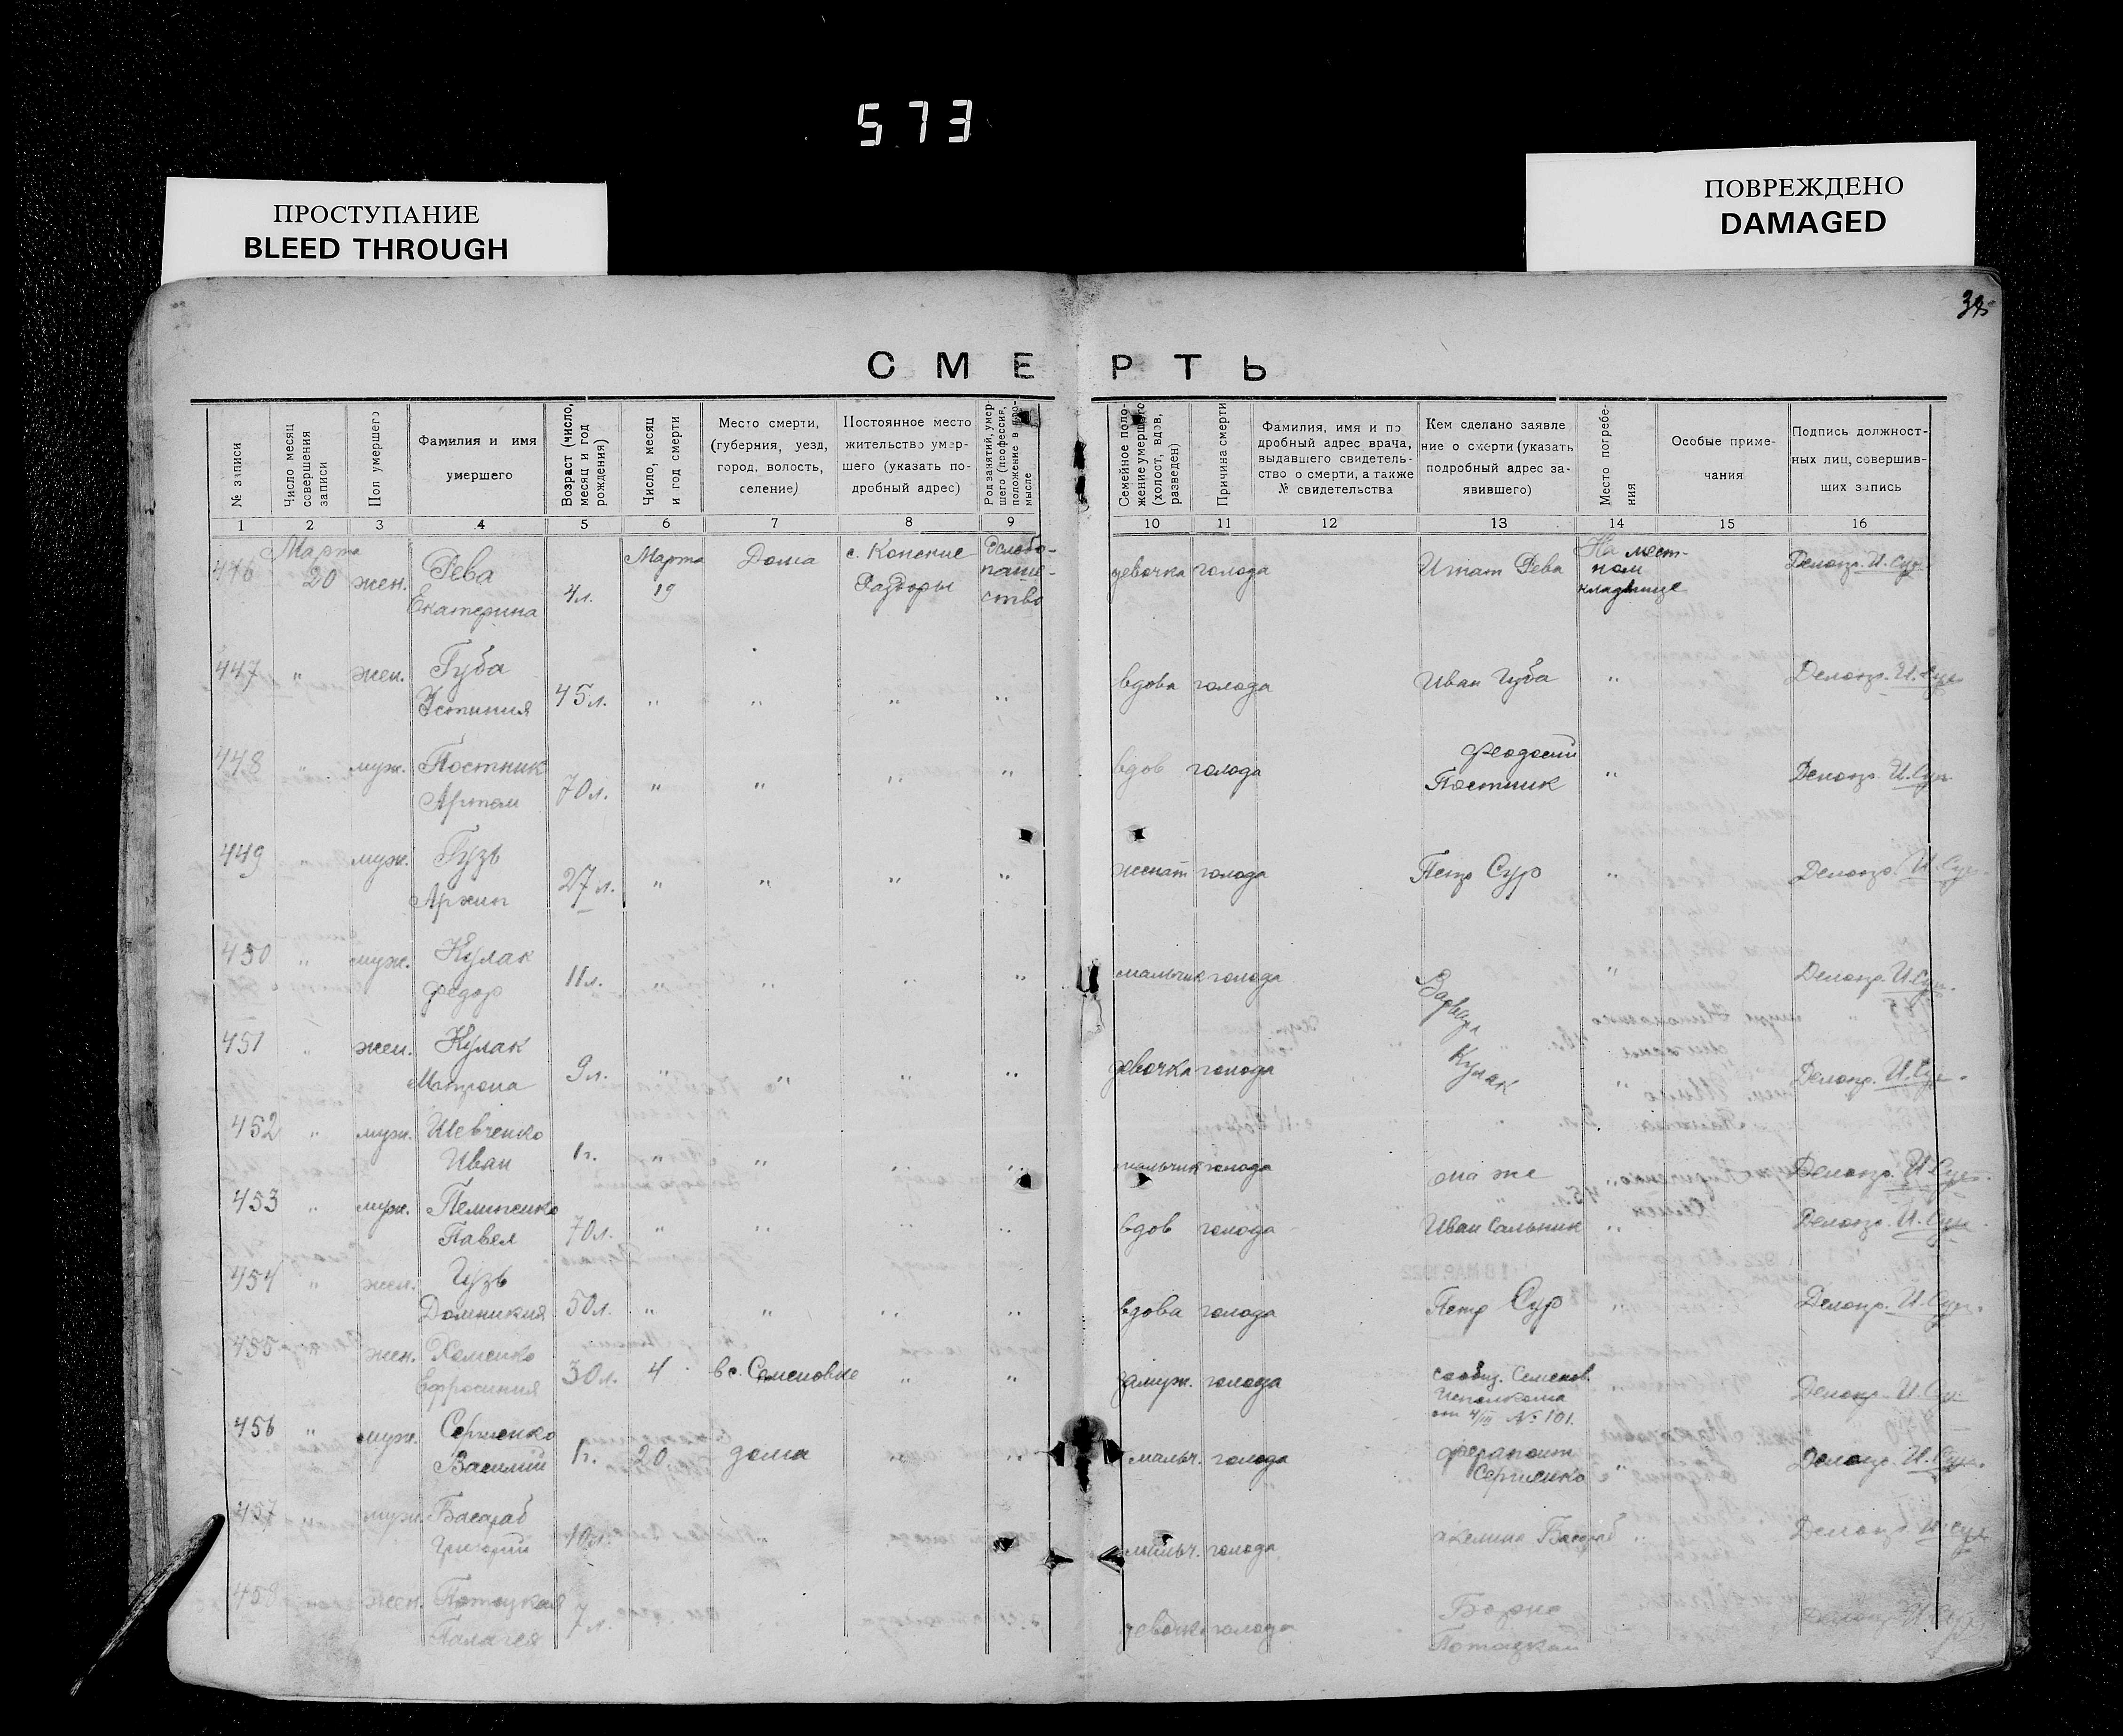 573
ПРОСТУПАНИЕ
BLEED THROUGH
ПОВРЕЖДЕНО
DAMAGED
СМЕРТЬ
№ записи
Число месяц совершения записи
Пол умершего
Фамилия и имя
умершего
Возраст (число, месяц и год рождения)
Число, месяц и год смерти
Место смерти,
(губерния, уезд,
город, волость,
селение)
Постоянное место
жительство умер-
шего (указать по-
дробный адрес)
Род занятий, умер-
шего (профессия,
положение в про-
мысле
Семейное поло-
жение умершего
(холост, вдов,
разведен)
Причина смерти
Фамилия, имя и по
дробный адрес врача,
выдавшего свидетель-
ство о смерти, а также
№ свидетельства
Кем сделано заявле
ние о смерти (указать
подробный адрес за-
явившего)
Место погребе-
ния
Особые приме-
чания
Подпись должност-
ных лиц, совершив-
ших запись
1 2 3 4 5 6 7 8 9 10 11 12 13 14 15 16
Марта Марта Дома с. Конские На мест-
446 20 жен. Рева 19 Раздоры девочка голода Рева ном Делопр. И. Сур
Екатерина 4 л. ство кладбище
447 " жен. Губа
Устиния 45 л. " " " " вдова голода Иван Губа " Делопр. И. Сур
448 " муж. Постник Феодосий
Артем 70 л. " " " " вдов голода Постник " Делопр. И. Сур
449 " муж. Гузь
Архип 27 л. " " " " женат голода Петр Сур " Делопр. И. Сур
450 " муж. Кулак
Федор 11 л. " " " " мальчик голода Варвара " Делопр. И. Сур.
451 " жен. Кулак
Матрона 9 л. " " " " девочка голода Кулак " Делопр. И. Сур.
452 " муж. Шевченко
Иван 1 г. " " " " мальчик голода она же " Делопр. И. Сур.
453 " муж.
Павел 70 л. " " " " вдов голода Иван Сальник " Делопр. И. Сур
454 " жен. Гузь
Домникия 50 л. " " " " вдова голода Петр Сур " Делопр. И. Сур.
455 " жен. Хоменко
Ефросиния 30 л. 4 в с. Семеновке " " замуж. голода сообщ. Семенов.
Исполкома
от 4/III № 101. Делопр. И. Сур
456 " муж. Сергиенко
Василий 1 г. 20 дома " " мальч. голода Ферапонт
Сергиенко " Делопр. И. Сур.
457 " муж. Басараб
Григорий 10 л. " мальч. голода Акелина Басараб " Делопр. И. Сур
458 " жен. Потоцкая
Палагея 7 л. девочка голода